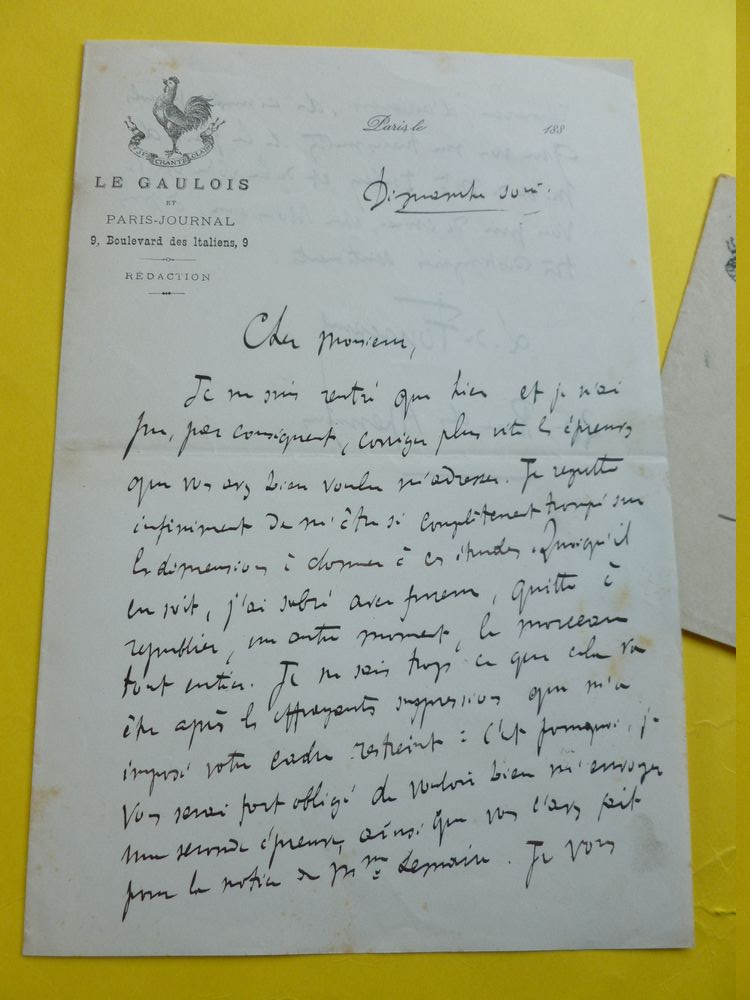 JE CHANTE CLAIR
LE GAULOIS
ET
PARIS-JOURNAL
9, Boulevard des Italiens, 9
RÉDACTION
Paris le 188
Dimanche soir.
Cher monsieur,
Je ne suis rentré que hier et je n'ai
pu, par conséquent, corriger plus vite les épreuves
que vous avez bien voulu m'adresser. Je regrette
infiniment de m'être si complètement trompé sur
les dimensions à donner à ces études. Quoiqu'il
en soit, j'ai sabré avec fureur, quitte à
republier, un autre moment, le morceau
tout entier. Je ne sais trop ce que cela va
être après les effrayantes suppressions que m'a
imposé votre cadre restreint : C'est pourquoi, je
vous serai fort obligé de vouloir bien m'envoyer
une seconde épreuve, ainsi que vous l'avez fait
pour la notice de Mme Lemaire. Je vous